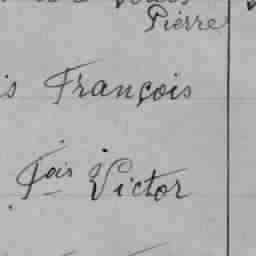 Pierre
is François
Fois Victor